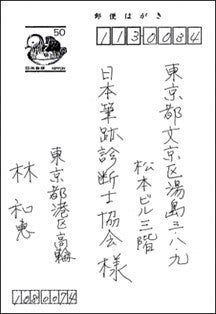 郵便はがき
50
日本郵便
NIPPON
1130034
東京都文京区湯島三八九
松本ビル三階
日本筆跡診断士協会 様
東京都港区高輪
林 和恵
1080074